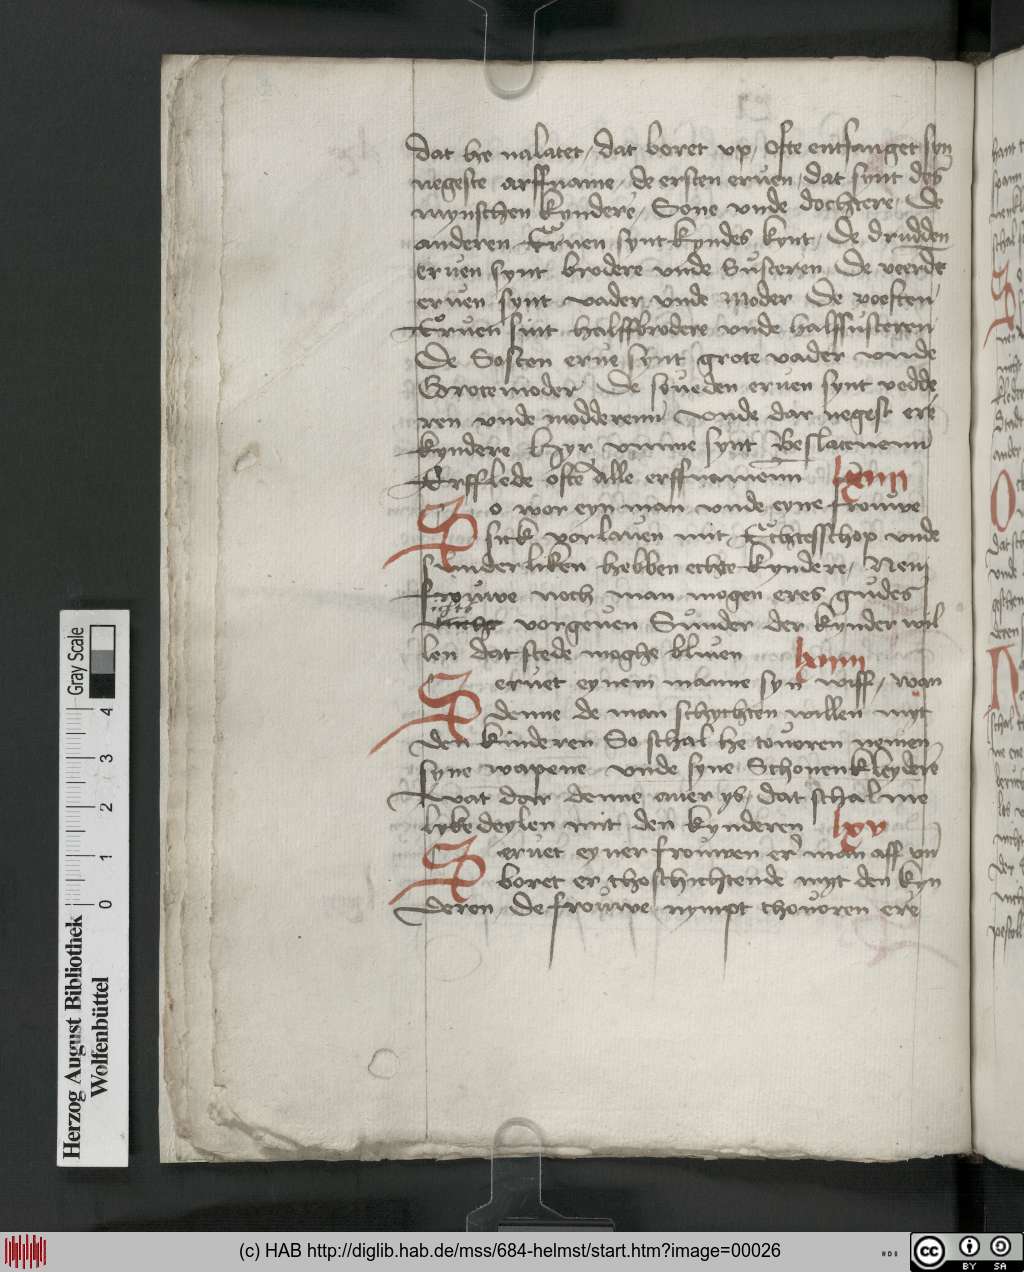 dat he nalatet / dat boret vp / ofte entfanget syn
negeste arffname / de ersten eruen / dat synt des
mynschen kyndere / Sone vnde dochtere / De
anderen Eruen synt kyndes kynt / De drudden
eruen synt brodere vnde Susteren De veerde
eruen synt vader vnde Moder De voeften
Eruen sint halffbrodere vnde halffsusteren
De Sosten erue synt grote vader vnde
Grotemoder De soueden eruen synt vedde
ren vnde modderenn vnde dar negest ere
kyndere Hyr vmme synt Beslatenenn
Erfflede ofte Alle erffnamenn lxiii
So wor eyn man vnde eyne frouwe
sick vorlauen mit Echtesschop vnde
sunderliken hebben echte kyndere / Nen
frouwe noch man mogen eres gudes
nicht vorgeuen Sunder der kynder wil
len dat stede moghe bliuen lxiiii
Steruet eynem manne syn wiff / wan
denne de man schychten willen myt
den kinderen So schal he touoren nemen
syne wapene vnde syne Schonenkleydere
Wat dar denne auer ys / dat schal me
lyke deylen mit den kynderen lxv
Steruet eyner frouwen er man aff vn
boret er thoschichtende myt den kyn
deren De frouwe nympt thouoren ere
Gray Scale
4
3
2
1
0
Herzog August Bibliothek
Wolfenbüttel
(c) HAB http://diglib.hab.de/mss/684-helmst/start.htm?image=00026
cc
BY SA